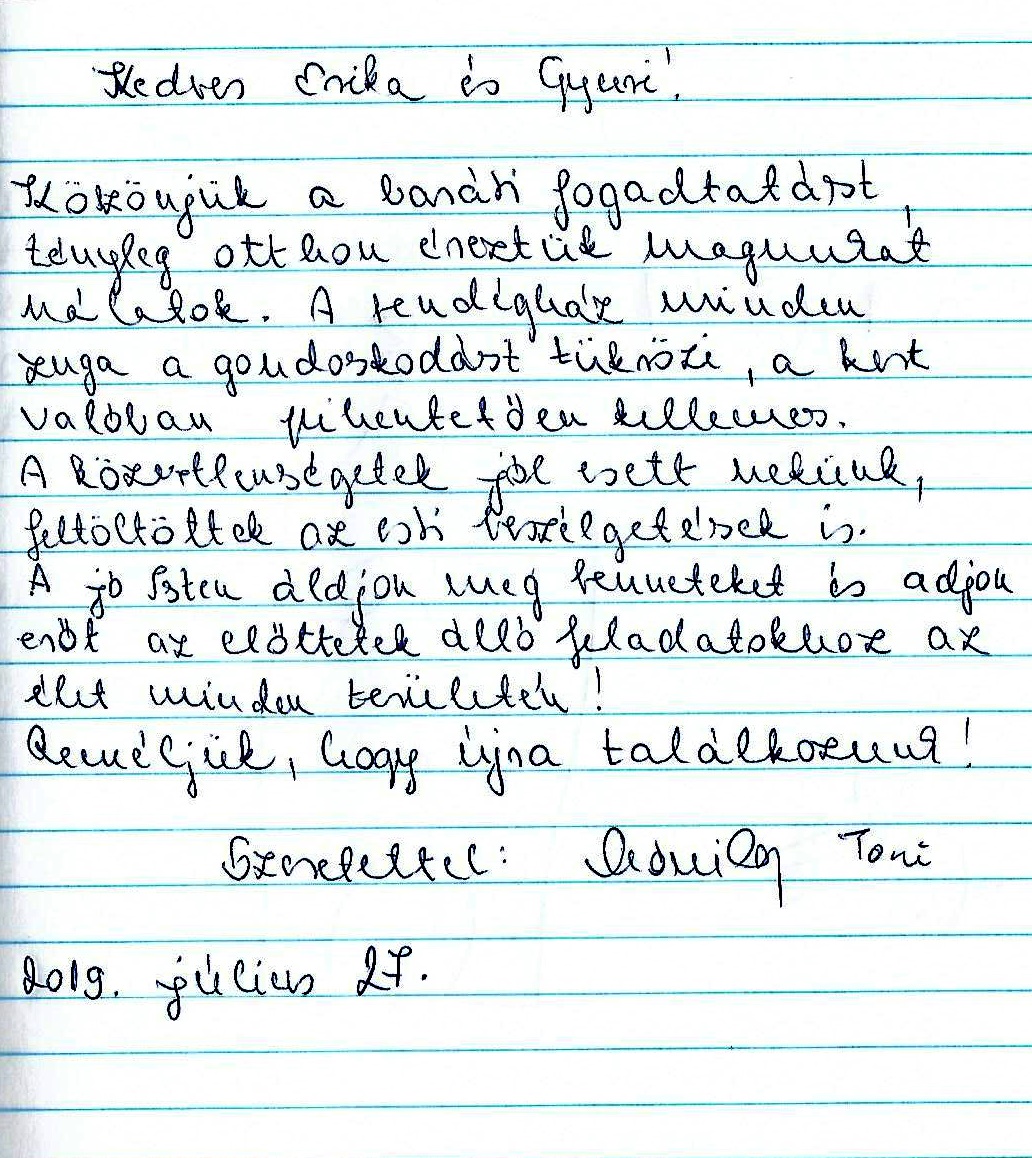 Kedves Erika és Gyuri!
Köszönjük a baráti fogadtatást,
tényleg otthon éreztük magunkat
nálatok. A vendégház minden
zuga a gondoskodást tükrözi, a kert
valóban pihentetően kellemes.
A közvetlenségetek jól esett nekünk,
feltöltöttek az esti beszélgetések is.
A jó Isten áldjon meg benneteket és adjon
erőt az előttetek álló feladatokhoz az
élet minden területén!
Reméljük, hogy újra találkozunk!
Szeretettel: Toni
2019. július 27.